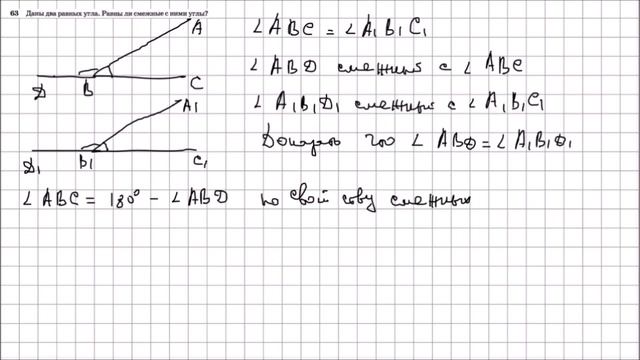 63 Даны два равных угла. Равны ли смежные с ними углы?
A
D B C
∠ABC = ∠A₁B₁C₁
∠ABD смежный с ∠ABC
A₁
D₁ B₁ C₁
∠A₁B₁D₁ смежный с ∠A₁B₁C₁
Доказать что ∠ABD = ∠A₁B₁D₁
∠ABC = 180° − ∠ABD по свойству смежных